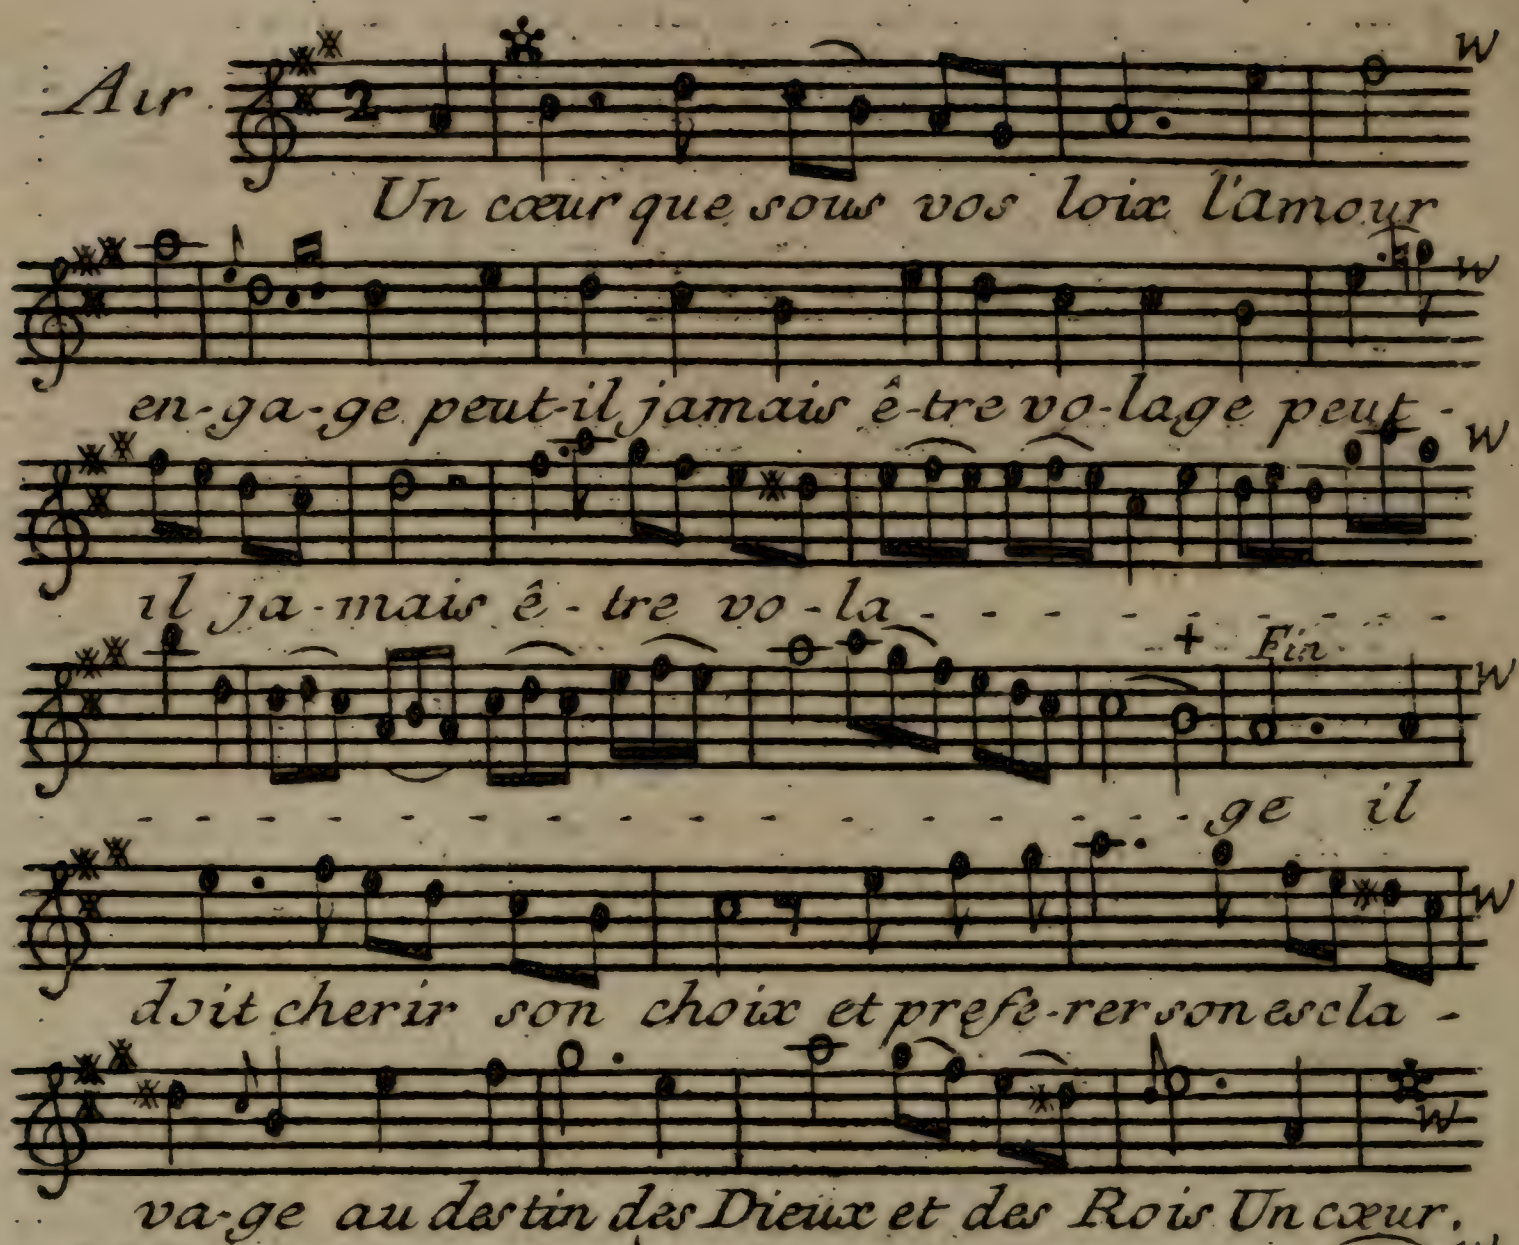 Air
2
Un cœur que sous vos loix l'amour
en-ga-ge peut-il jamais ê-tre vo-lage peut-
il ja-mais ê-tre vo-la - - - - - - - - - -
+ Fin
- - - - - - - - - - - - - - - - ge il
doit cherir son choix et prefe-rer son escla-
va-ge au destin des Dieux et des Rois Un cœur.